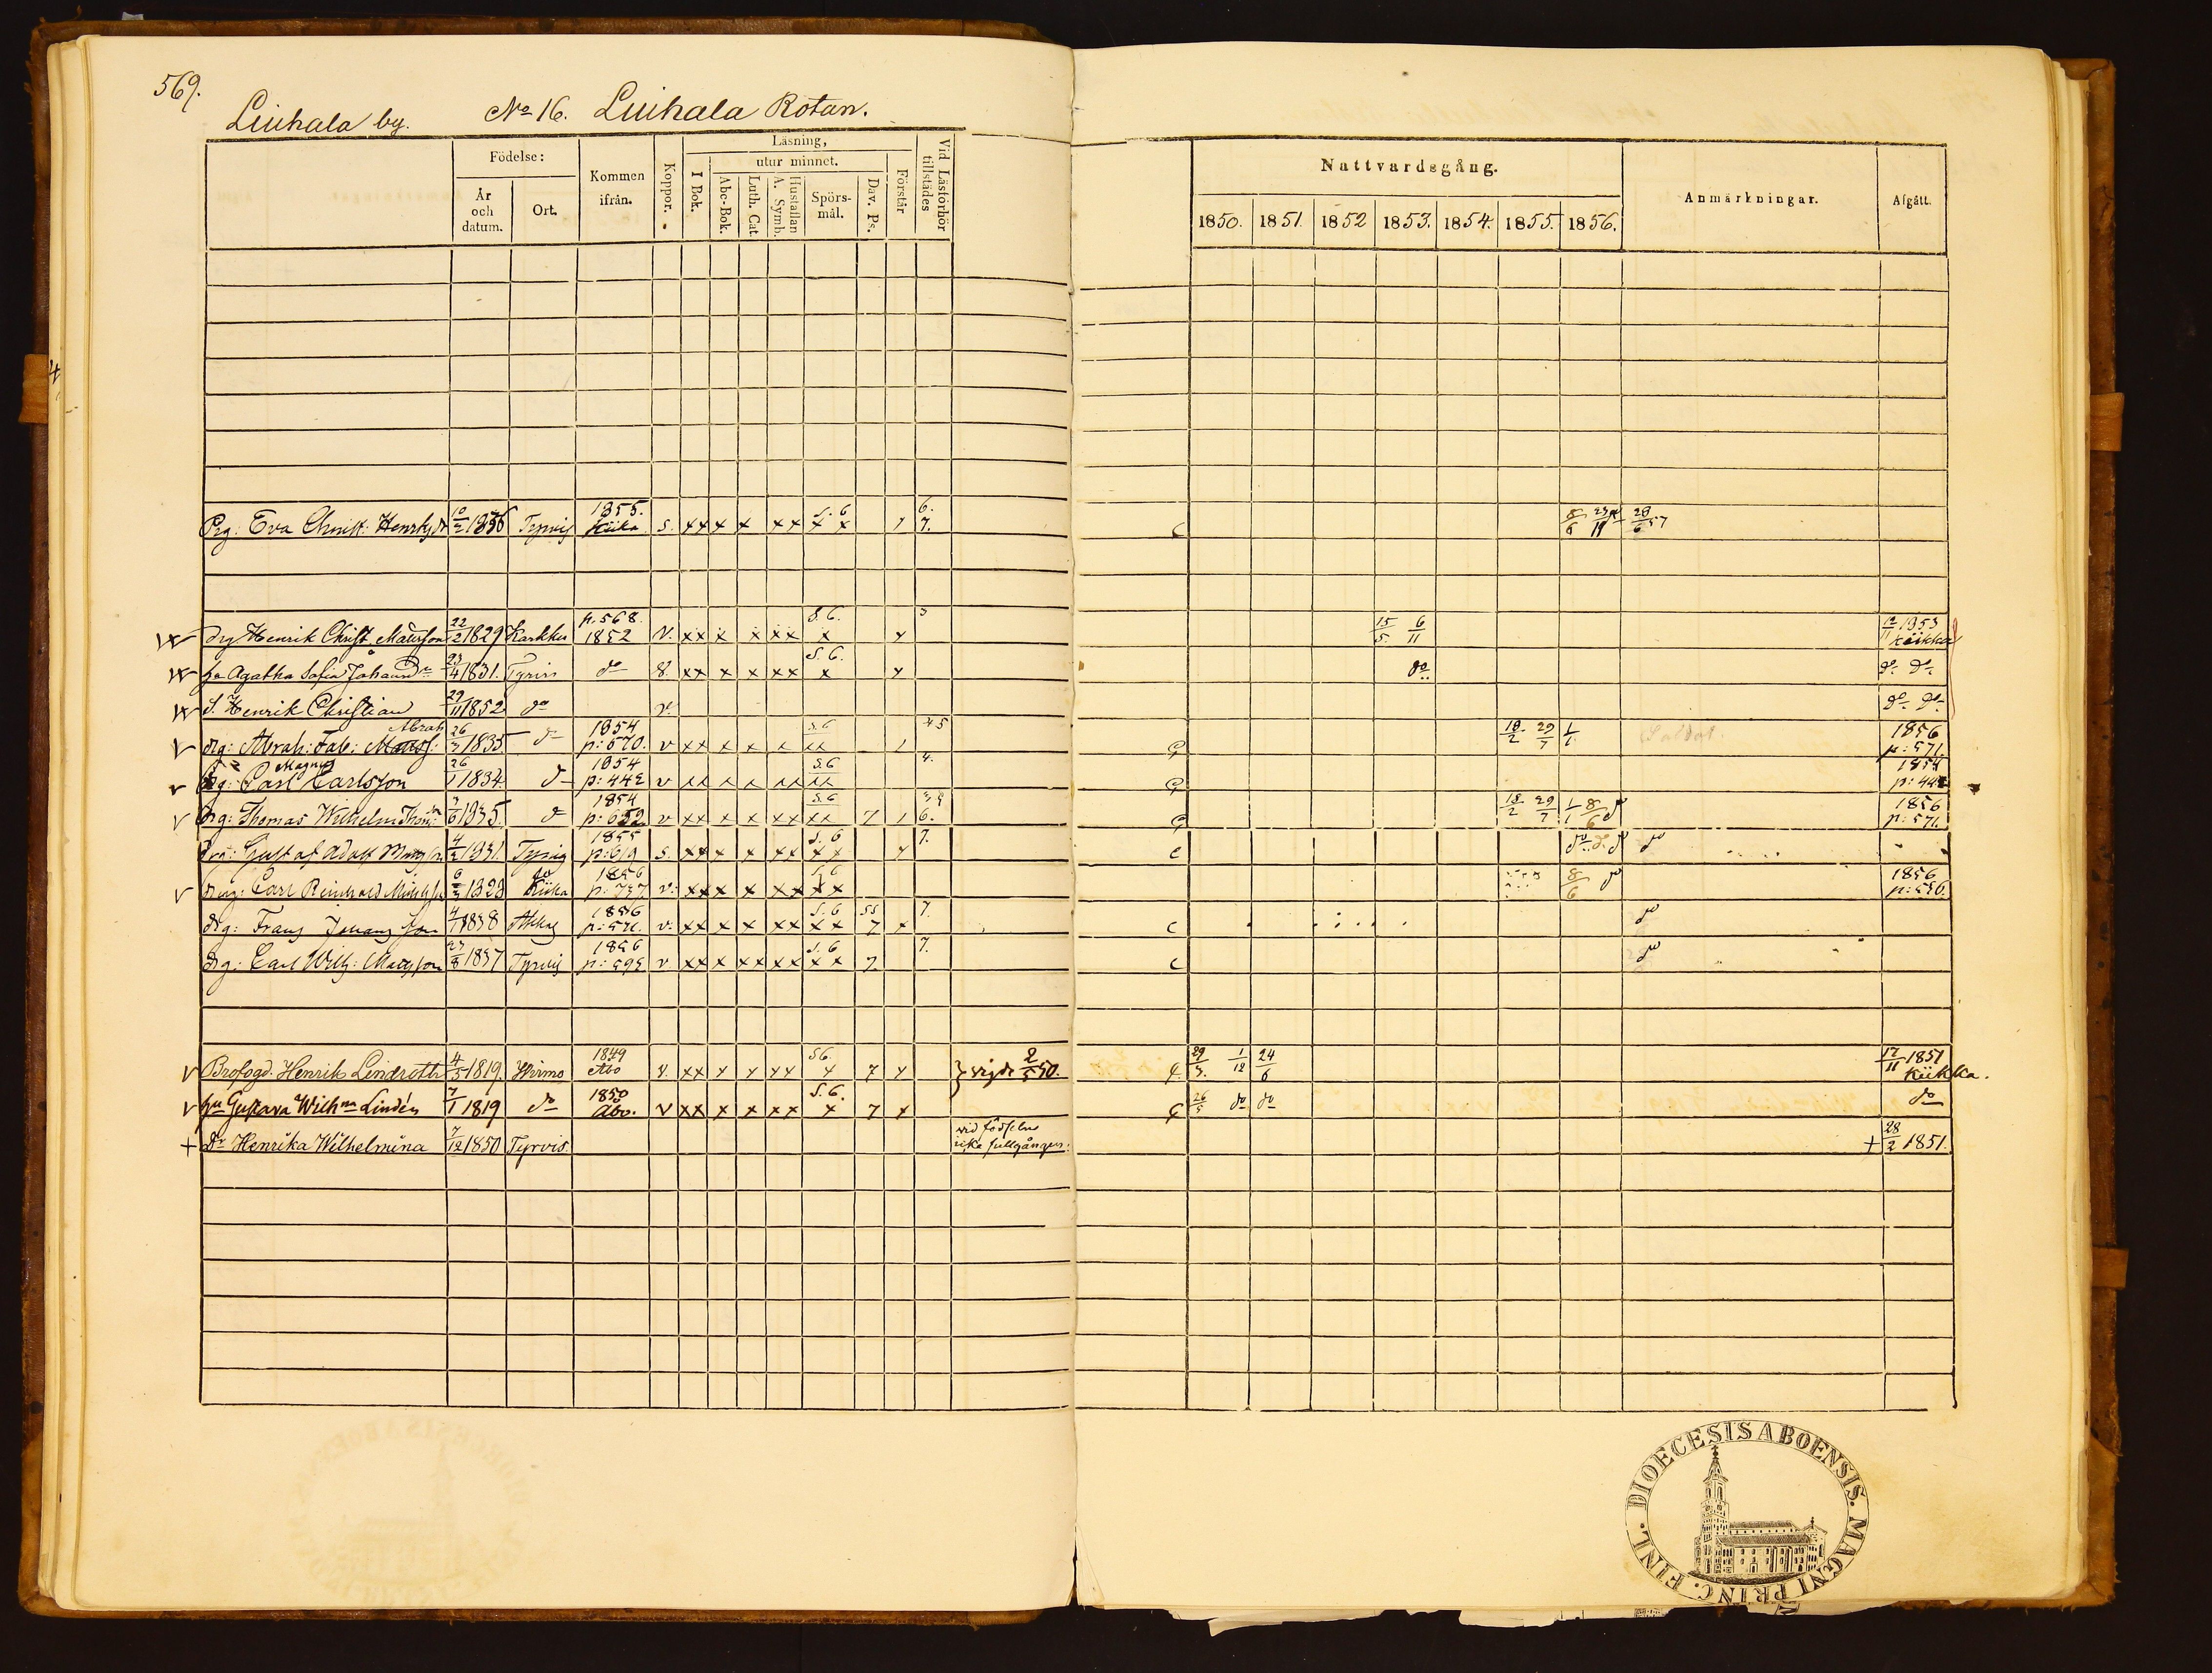 569.
Liuhala by. No 16. Liuhala Rotan.
Födelse: Kommen ifrån. Koppor. Läsning, Vid Läsförhör tillstädes
År och datum. Ort. I Bok. utur minnet. Förstår
Abc-Bok. Luth. Cat. Hustaflan A. Symb. Spörs-mål. Dav. Ps.
Nattvardsgång. Anmärkningar. Afgått.
1850. 1851. 1852 1853. 1854. 1855. 1856.
Eva Christ: 10/2 1836 Tyrvis 1855. Kiika s. xx x x xx S. 6 x x 6. 7. 8/6 28/6 57
drg Henrik Christ Matsson 22/2 1829 Karkku p. 568. 1852 v. xx x x xx S. 6. x x 3 15/5. 6/11 1853 Kiikka
Agatha Sofia Johansdr 23/4 1831. Tyrvis do v. xx x x xx S. 6. x x do do do
S. Henrik Christian 29/11 1852 do v. do do
drg: Abrah: Fab: Abrah 26/3 1835 do 1854 p: 570. v xx x x x S. 6 xx 4 5 18/2 29/7 1/1 Soldat. 1856 p: 571.
drg: Carl Magnus Carlsson 26/1 1834. do 1854 p: 442 v xx x x xx S. 6 xx 4. 1854 p: 442
drg: Thomas Wilhelm 1835. do 1854 p: 652 v xx x x xx S. 6 xx 7 6. 18/2 29/7 1/1 8/6 do 1856 p: 571.
Gustaf Adolf 4/2 1831. Tyrvis 1855 p: 619 s. xx x x xx S. 6 xx x 7. do do do
drg: Carl Reinhold 6/3 1823 Kiika 1856 p: 737 v: xx x x xx S. 6 xx 8/6 do 1856 p: 556.
drg: Frans Johansson 4/1 1838 1856 v. xx x x xx S. 6 xx 7 x 7. do
drg: Carl Wilh: Matsson 23/8 1837 Tyrvis 1856 p: 595 v xx x xx xx S. 6 xx 7. 7. do
Brofogd. Henrik Lindroth 4/5 1819. Wirmo 1849 Åbo v. xx x x xx S6. x 7 x } vigde 2/5 50. 29/3. 1/12 24/6 17/11 1851 Kiikka.
hu Gustava Wilhna Lindén 7/1 1819 do 1850 Åbo. v xx x x xx S. 6. x 7 x 26/5 do do do
+ Dr Henrika Wilhelmina 7/12 1850 Tyrvis. vid födseln icke fullgången. + 28/2 1851.
FINL. DIOECESIS ABOENSIS. MAGNI PRINC.